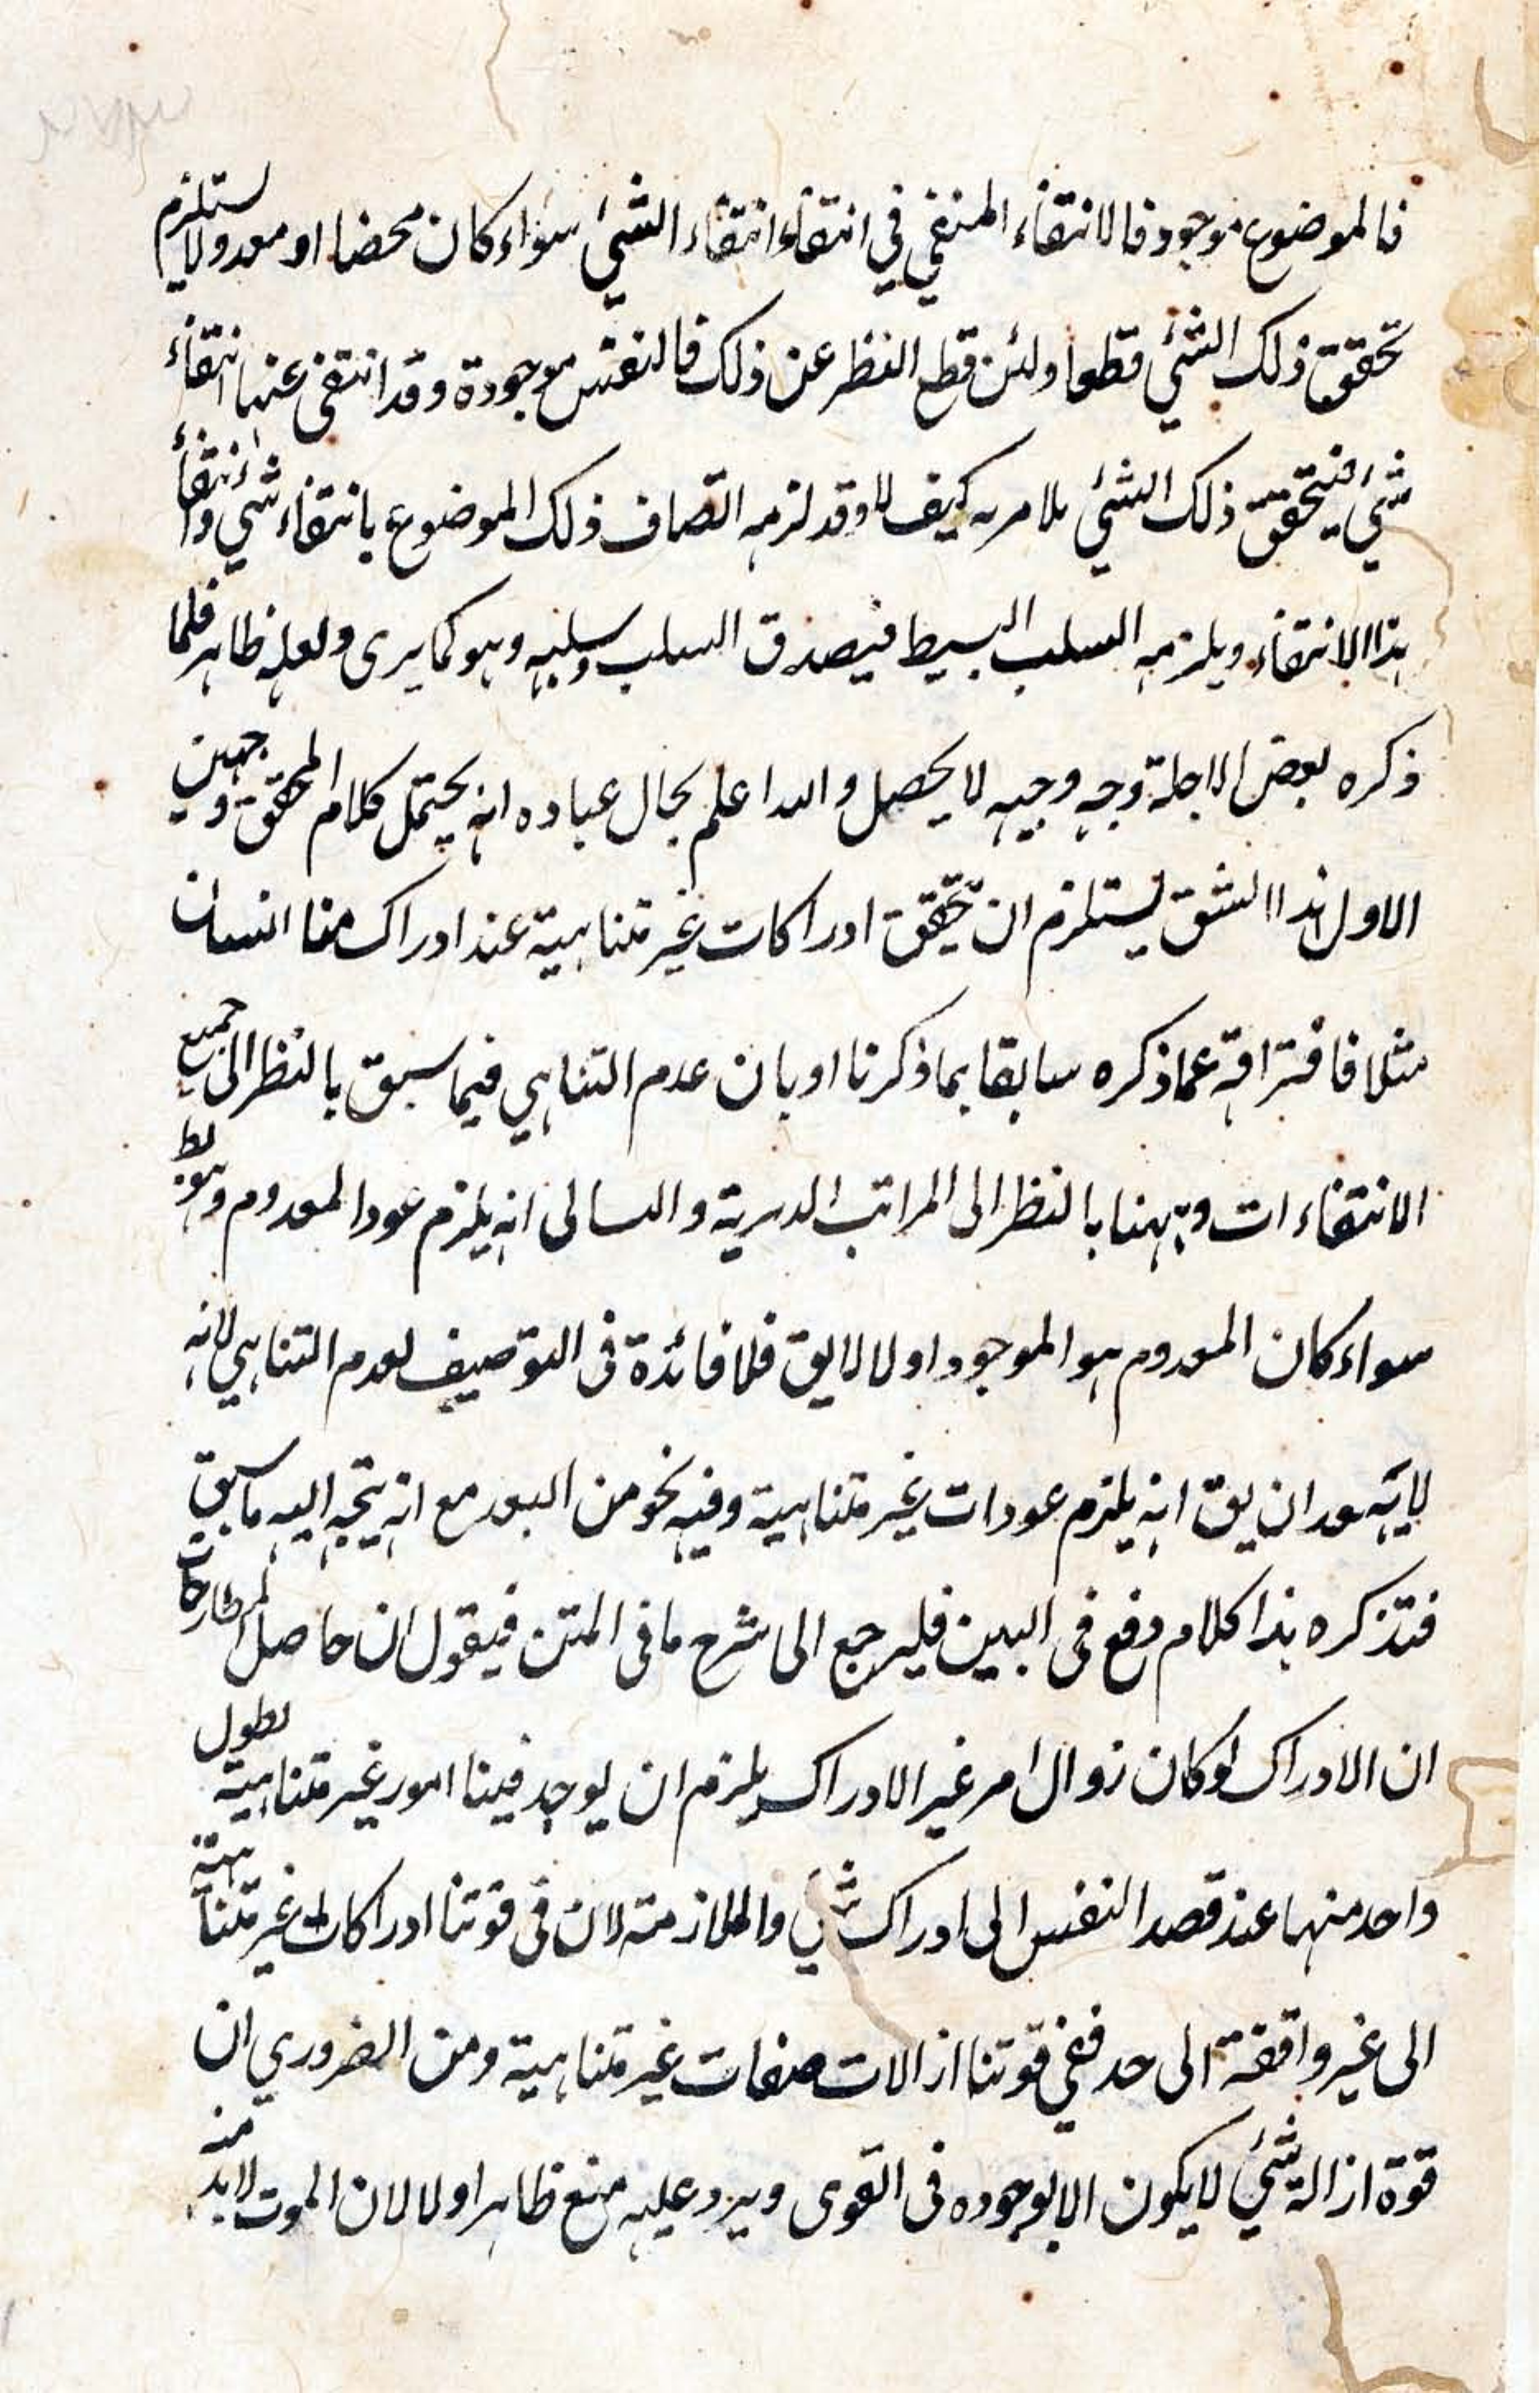 فالموضوع موجود فالانتفاء المنفي في انتفاء انتفاء الشئ سواء كان محضا او معدولا يستلزم
تحقق ذلك الشئ قطعا ولئن قطع النظر عن ذلك فالنفس موجودة وقد انتفى عنها انتفاء
شئ فيتحقق ذلك الشئ بلا مريه كيف لا وقد لزمه اتصاف ذلك الموضوع بانتفاء شئ وانتفاء
هذا الانتفاء ويلزمه السلب البسيط فيصدق السلب وسلبه وهو كما يرى ولعله ظاهر فلما
ذكره بعض الاجلة وجه وجيه لا يحصل والله اعلم بحال عباده انه يحتمل كلام المحقق وجهين
الاول هذا الشق يستلزم ان تحقق ادراكات غير متناهية عند ادراك منا انسان
مثلا فافتراقه عما ذكره سابقا بما ذكرنا او بان عدم التناهي فيما سبق بالنظر الى جميع
الانتفاءات وههنا بالنظر الى المراتب الدهرية والسالى انه يلزم عود المعدوم وهو بط
سواء كان المعدوم هو الموجود اولا لا يق فلا فائدة فى التوصيف لعدم التناهي لانه
ان يق انه يلزم عودات غير متناهية وفيه نحو من البعد مع انه يتجه اليه ما سبق
فتذكره هذا كلام وقع فى البين فليرجع الى شرح ما فى المتن فيقول ان حاصل المطارحات
ان الادراك لو كان زوال امر غير الادراك يلزم ان يوجد فينا امور غير متناهية بطول
واحد منها عند قصد النفس الى ادراك شئ والملازمة لان فى قوتنا ادراكات غير متناهية
الى غير واقفة الى حد ففي قوتنا ازالات صفات غير متناهية ومن الضروري ان
قوة ازالة شئ لا يكون الا بوجوده فى القوى ويرد عليه منع ظاهر اولا لان الموت لا بد منه